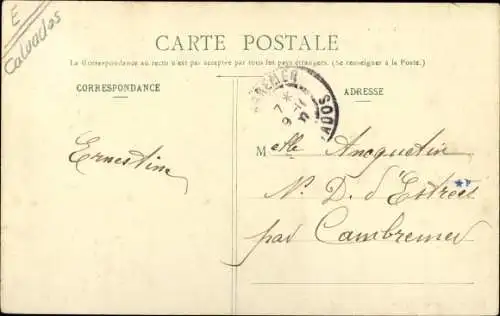 E
Calvados
CARTE POSTALE
La Correspondance au recto n'est pas acceptée par tous les pays étrangers. (Se renseigner à la Poste.)
CORRESPONDANCE
ADRESSE
7 *
9 -11
Ernestine
Melle Anquetin
N. D. d'Estrées
par Cambremer